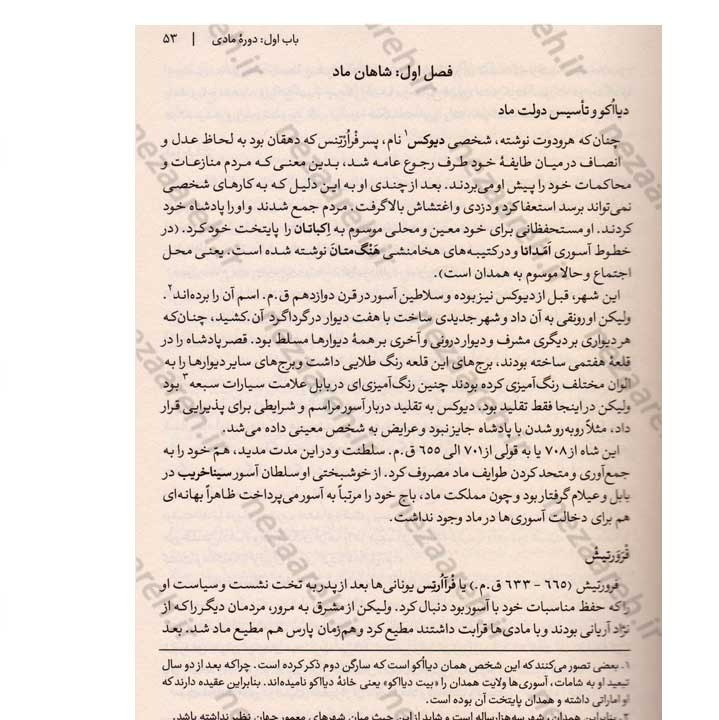 باب اول: دورۀ مادی | ۵۳
فصل اول: شاهان ماد
دیااُکو و تأسیس دولت ماد
چنان‌که هرودوت نوشته، شخصی دیوکس۱ نام، پسر فْراُرْتِس که دهقان بود به لحاظ عدل و
انصاف در میان طایفۀ خود طرف رجوع عامه شد، بدین معنی که مردم منازعات و
محاکمات خود را پیش او می‌بردند. بعد از چندی او به این دلیل که به کارهای شخصی
نمی‌تواند برسد استعفا کرد و دزدی و اغتشاش بالا گرفت. مردم جمع شدند و او را پادشاه خود
کردند. او مستحفظانی برای خود معین و محلی موسوم به اِکباتان را پایتخت خود کرد. (در
خطوط آسوری اَمَدانا و در کتیبه‌های هخامنشی هَنْگ‌مَتانَ نوشته شده است. یعنی محل
اجتماع و حالا موسوم به همدان است).
این شهر، قبل از دیوکس نیز بوده و سلاطین آسور در قرن دوازدهم ق.م. اسم آن را برده‌اند۲.
ولیکن او رونقی به آن داد و شهر جدیدی ساخت با هفت دیوار در گرداگرد آن. کشید، چنان‌که
هر دیواری بر دیگری مشرف و دیوار درونی و آخری بر همۀ دیوارها مسلط بود. قصر پادشاه را در
قلعۀ هفتمی ساخته بودند، برج‌های این قلعه رنگ طلایی داشت و برج‌های سایر دیوارها را به
الوان مختلف رنگ‌آمیزی کرده بودند چنین رنگ‌آمیزی‌ای در بابل علامت سیارات سبعه۳ بود
ولیکن در اینجا فقط تقلید بود، دیوکس به تقلید دربار آسور مراسم و شرایطی برای پذیرایی قرار
داد، مثلاً روبه‌رو شدن با پادشاه جایز نبود و عرایض به شخص معینی داده می‌شد.
این شاه از ۷۰۸ یا به قولی از ۷۰۱ الی ۶۵۵ ق.م. سلطنت و در این مدت مدید، همّ خود را به
جمع‌آوری و متحد کردن طوایف ماد مصروف کرد. از خوشبختی او سلطان آسور سیناخریب در
بابل و عیلام گرفتار بود و چون مملکت ماد، باج خود را مرتباً به آسور می‌پرداخت ظاهراً بهانه‌ای
هم برای دخالت آسوری‌ها در ماد وجود نداشت.
فْرَوَرتیش
فرورتیش (۶۶۵ - ۶۳۳ ق.م.) یا فْرآاُرتِس یونانی‌ها بعد از پدر به تخت نشست و سیاست او
را که حفظ مناسبات خود با آسور بود دنبال کرد. ولیکن از مشرق به مرور، مردمان دیگر را که از
نژاد آریانی بودند و با مادی‌ها قرابت داشتند مطیع کرد و هم‌زمان پارس هم مطیع ماد شد. بعد
۱. بعضی تصور می‌کنند که این شخص همان دیااُکو است که سارگن دوم ذکر کرده است. چراکه بعد از دو سال
تبعید او به شامات، آسوری‌ها ولایت همدان را «بیت دیااکو» یعنی خانۀ دیااکو نامیده‌اند. بنابراین عقیده دارند که
او امارتی داشته و همدان پایتخت آن بوده است.
۲. بنابراین همدان، شهر سه‌هزارساله است و شاید از این حیث میان شهرهای معمور جهان نظیر نداشته باشد.
nezaareh.ir